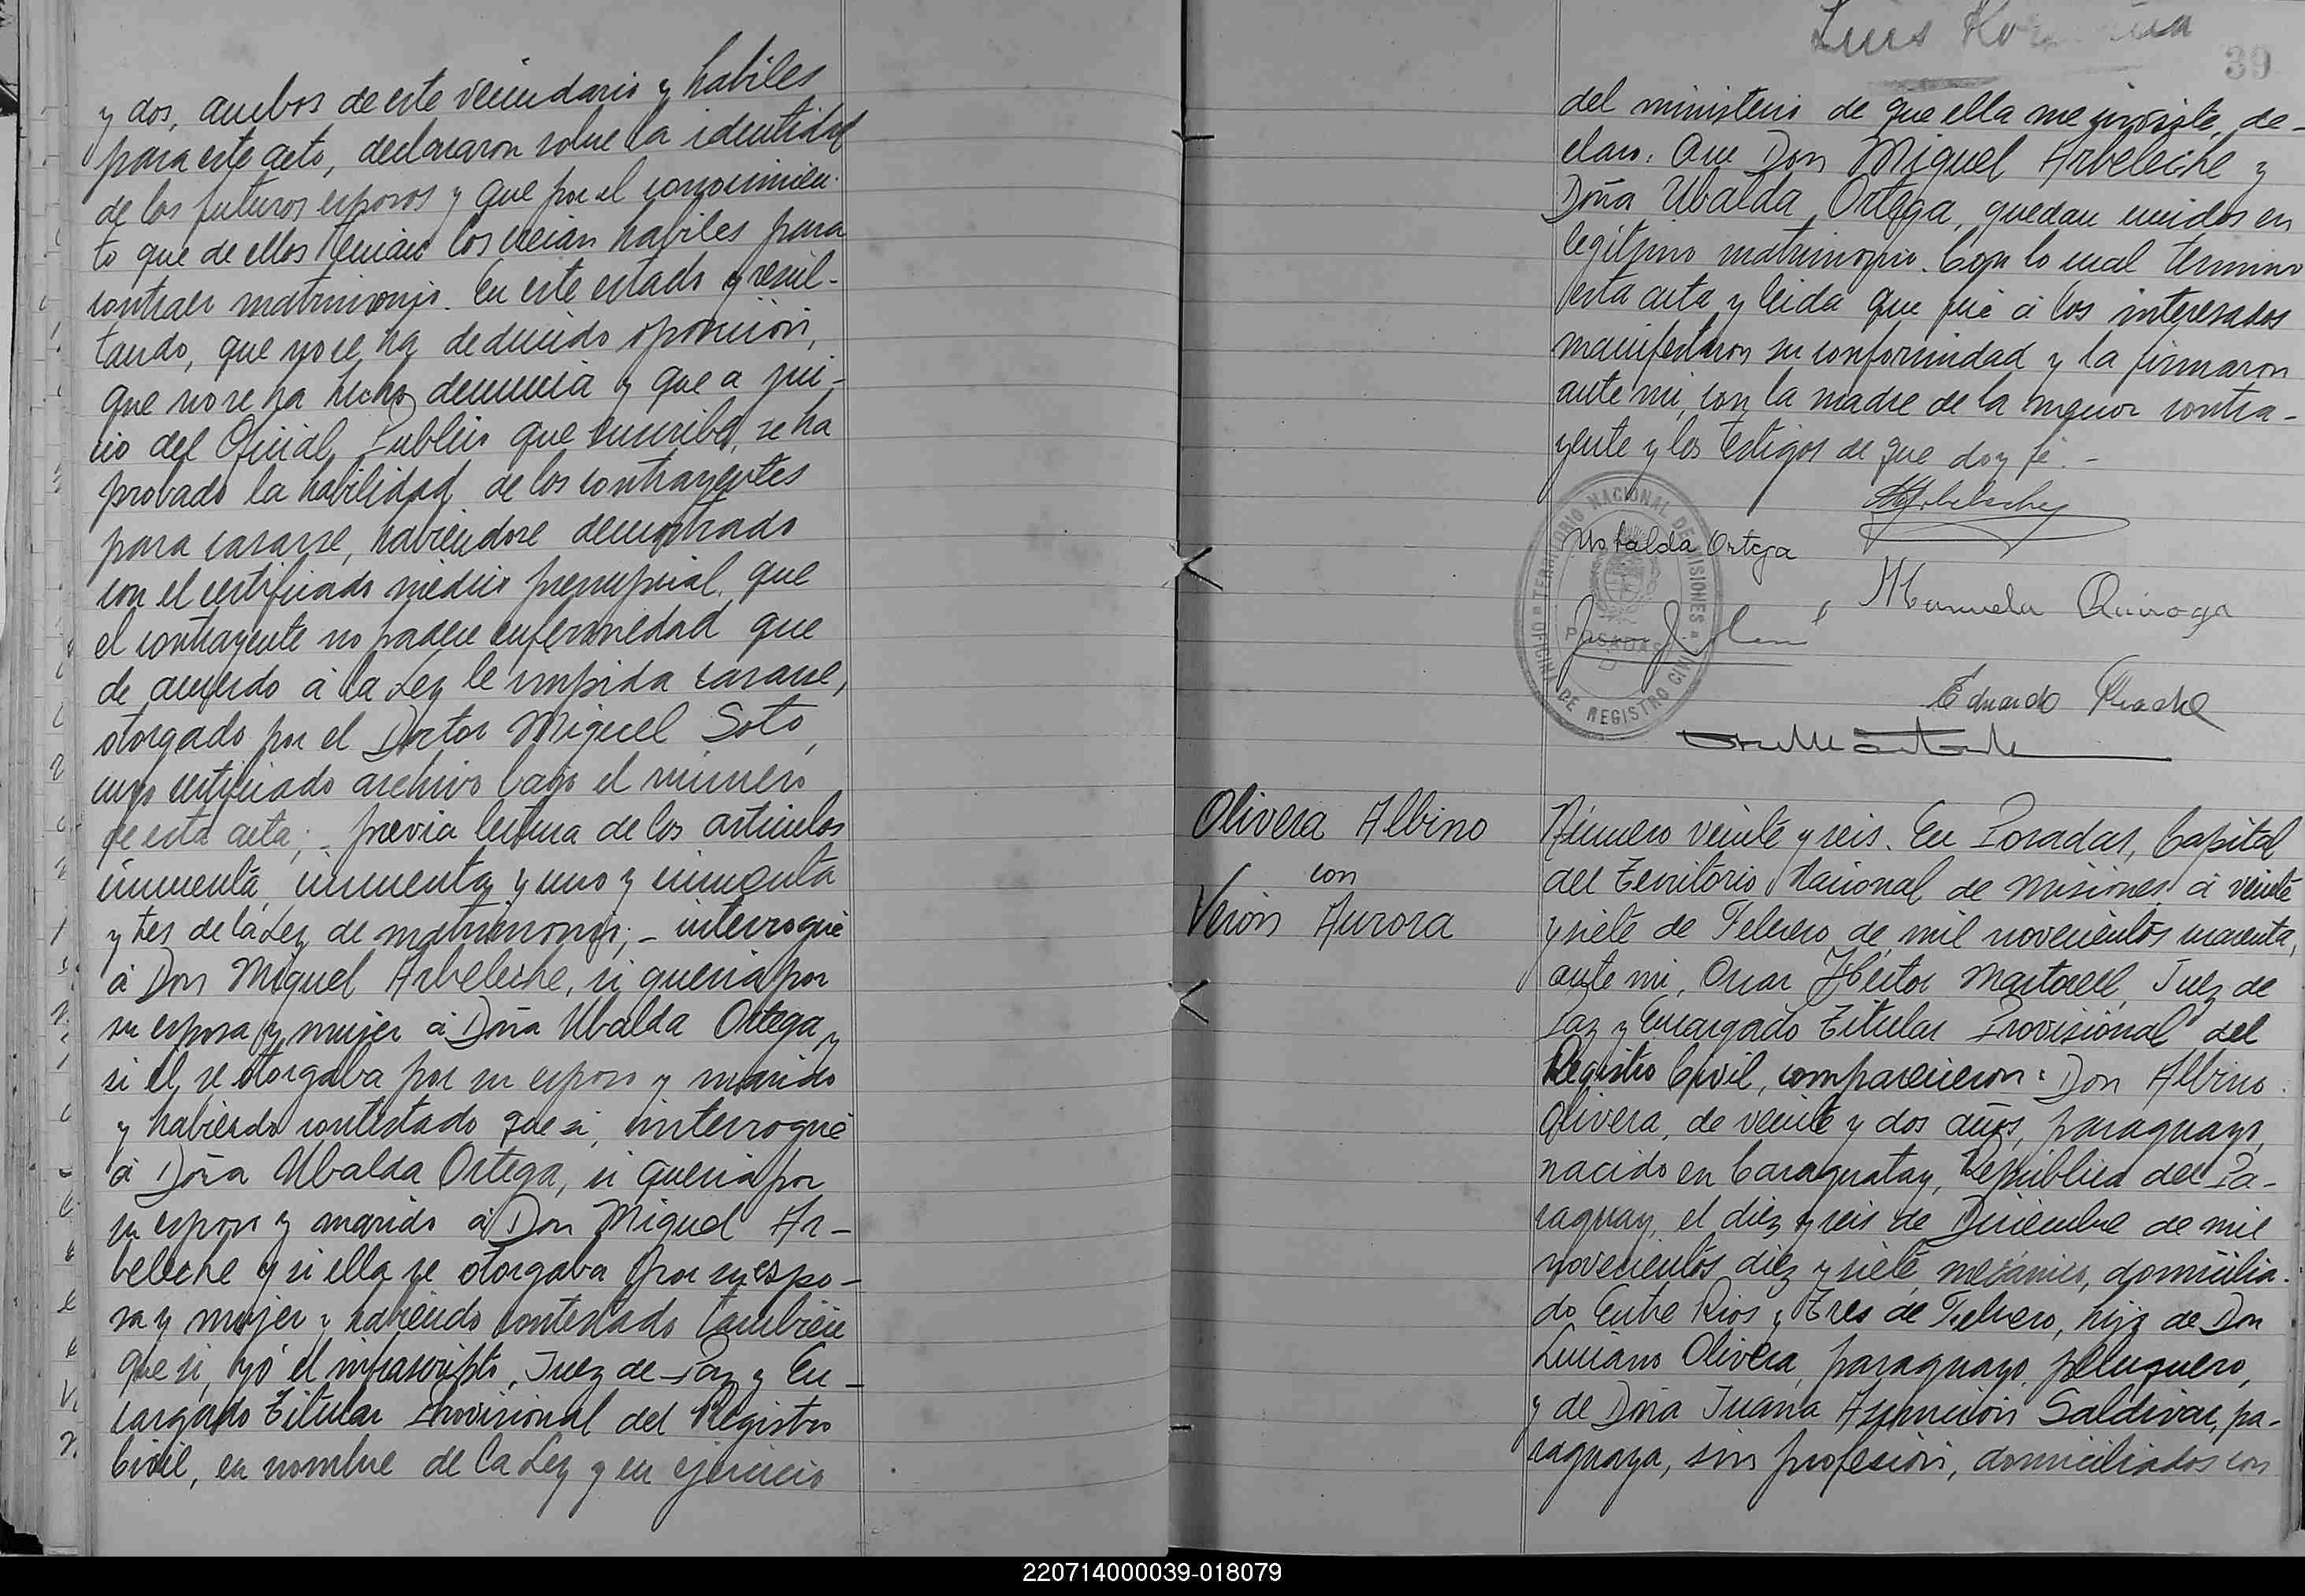 y dos, ambos de este vecindario y habiles
para este acto, declararon sobre la identidad
de los futuros esposos y que por el conocimien-
to que de ellos tenian los creian habiles para
contraer matrimonio. En este estado y resul-
tando, que no se ha deducido oposición,
que no se ha hecho denuncia y que a jui-
cio del Oficial Publico que suscribe, se ha
probado la habilidad de los contrayentes
para casarse, habiendose demostrado
con el certificado médico prenupcial, que
el contrayente no padece enfermedad que
de acuerdo á la Ley le impida casarse,
otorgado por el Doctor Miguel Soto,
cuyo certificado archivo bajo el número
de esta acta; - previa lectura de los articulos
cincuenta, cincuenta y uno y cincuenta
y tres de la Ley de matrimonio; - interrogué
á Don Miguel Arbeleche, si queria por
su esposa y mujer á Doña Ubalda Ortega, y
si él se otorgaba por su esposo y marido
y habiendo contestado que si, interrogué
á Doña Ubalda Ortega, si queria por
su esposo y marido á Don Miguel Ar-
beleche y si ella se otorgaba por su espo-
sa y mujer y habiendo contestado tambien
que si, yó el infrascripto, Juez de Paz y En-
cargado Titular Provisional del Registro
Civil, en nombre de la Ley y en ejercicio
Luis
39
del ministerio de que ella me inviste, de-
claro: Que Don Miguel Arbeleche y
Doña Ubalda Ortega, quedan unidos en
legitimo matrimonio. Con lo cual termino
esta acta y leida que fué á los interesados
manifestaron su conformidad y la firmaron
ante mi, con la madre de la menor contra-
yente y los testigos de que doy fé. -
MArbeleche
Ubalda Ortega
Manuela Quiroga
Eduardo
TERRITORIO NACIONAL DE MISIONES
POSADAS
OFICINA DE REGISTRO CIVIL
Olivera Albino
con
Verón Aurora
Número veinte y seis. En Posadas, Capital
del Territorio Nacional de Misiones á veinte
y siete de Febrero de mil novecientos cuarenta,
ante mi, Oscar Héctor Martorell, Juez de
Paz y Encargado Titular Provisional del
Registro Civil, comparecieron: Don Albino
Olivera, de veinte y dos años, paraguayo,
nacido en Caraguatay, República del Pa-
raguay, el diez y seis de Diciembre de mil
novecientos diez y siete, mecánico, domicilia-
do Entre Rios y Tres de Febrero, hijo de Don
Luciano Olivera, paraguayo, peluquero,
y de Doña Juana Asunción Saldivar, pa-
raguaya, sin profesión, domiciliados con
220714000039-018079